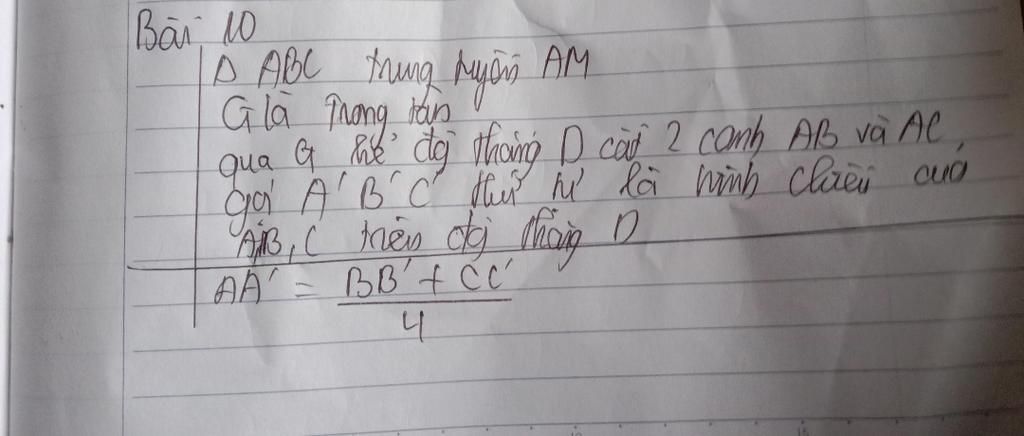 Bài 10
Δ ABC trung tuyến AM
G là Trọng tâm
qua G kẻ đg thẳng D cắt 2 cạnh AB và AC
gọi A' B' C' thứ tự là hình chiếu của
A, B, C trên đg thẳng D
AA' = BB' + CC' / 4